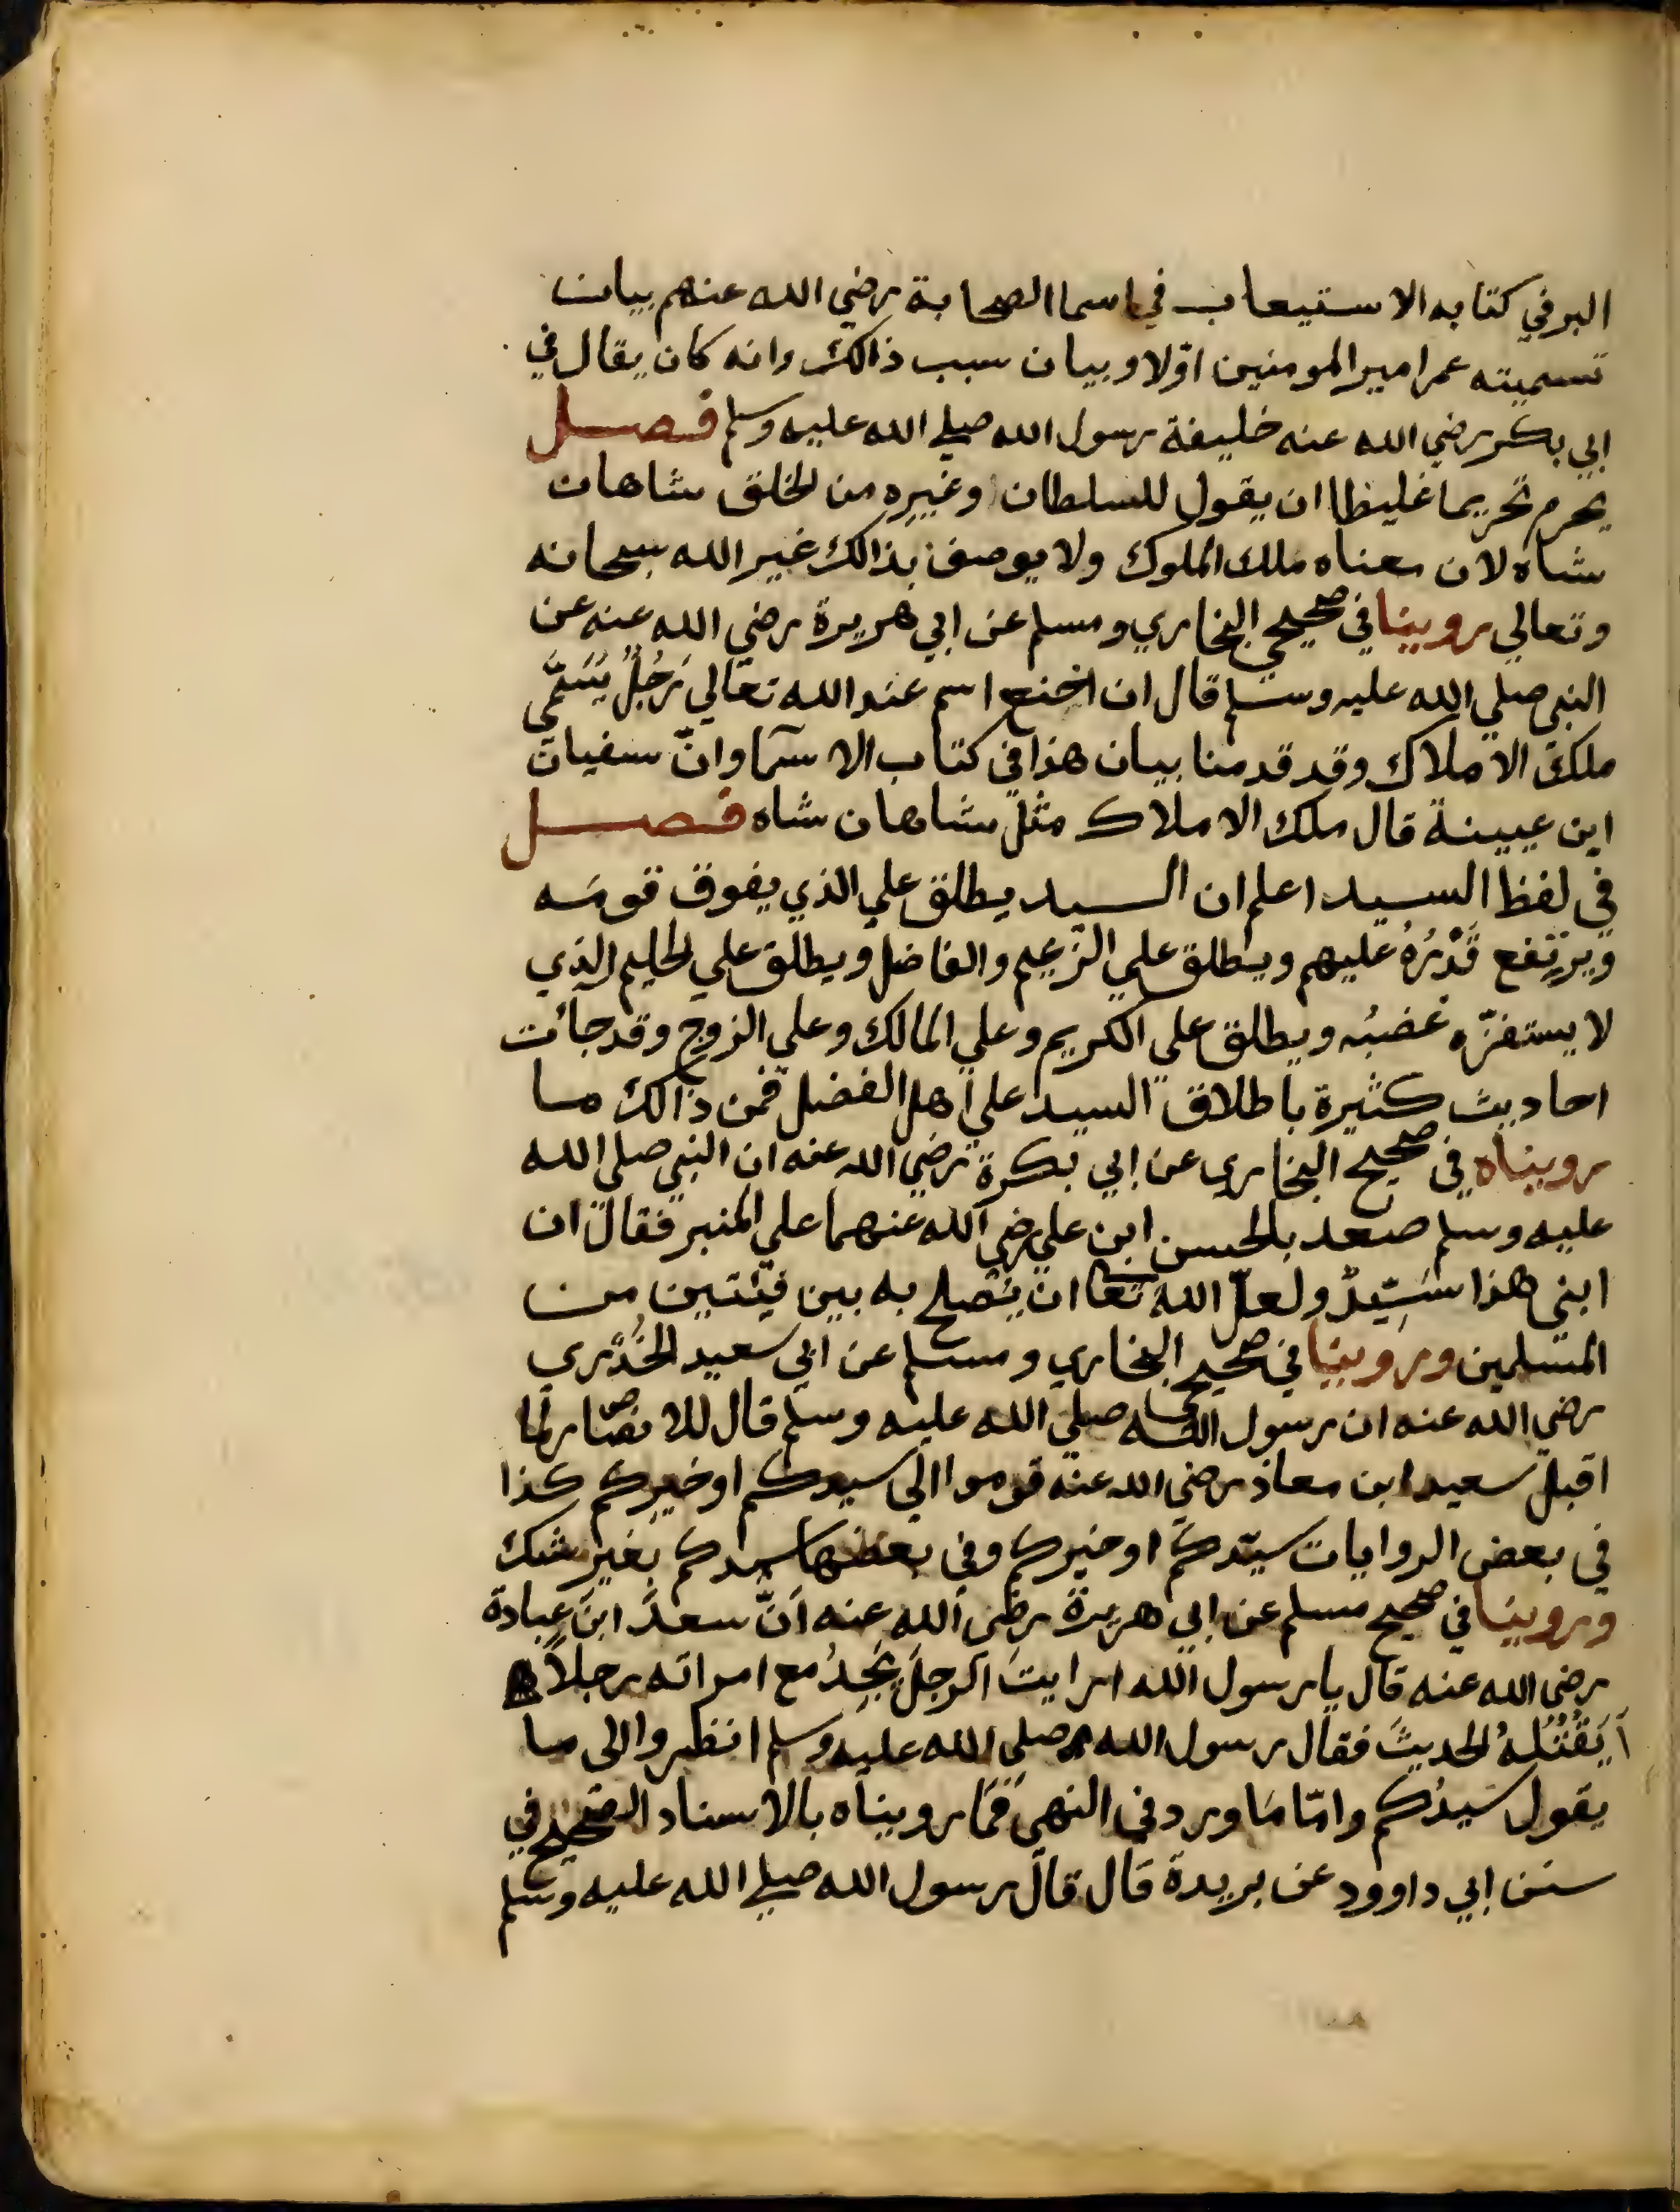 البر في كتابه الاستيعاب في اسما الصحابة رضي الله عنهم بيان
تسميته عمر امير المومنين اوّلا وبيان سبب ذالك وانه كان يقال في
ابي بكر رضي الله عنه خليفة رسول الله صلي الله عليه وسلم فصل
يحرم تحريما غليظا ان يقول للسلطان وغيره من الخلق شاهان
شاه لان معناه ملك الملوك ولا يوصف بذالك غير الله سبحانه
وتعالي روينا في صحيحي البخاري ومسلم عن ابي هريرة رضي الله عنه عن
النبي صلي الله عليه وسلم قال ان اخنع اسم عند الله تعالي رَجُلٌ يُسَمَّي
ملك الاملاك وقد قدمنا بيان هذا في كتاب الاسمآ وانّ سفيان
ابن عيينة قال ملك الاملاك مثل شاهان شاه فصل
في لفظ السيد اعلم ان السيد يطلق علي الذي يفوق قومَه
ويرتفع قَدْرُهُ عليهم ويطلق علي الزعيم والفاضل ويطلق علي الحليم الذي
لا يستفزّه غضبُه ويطلق علي الكريم وعلي المالك وعلي الزوج وقد جائت
احاديث كثيرة باطلاق السيد علي اهل الفضل فمن ذالك ما
رويناه في صحيح البخاري عن ابي بكرة رضي الله عنه ان النبي صلي الله
عليه وسلم صعد بالحسن ابن علي رضي الله عنهما علي المنبر فقال ان
ابني هذا سَيِّدٌ ولعلّ الله تعا ان يُصلح به بين فيئتين من
المسلمين وروينا في صحيحي البخاري ومسلم عن ابي سعيد الخُدْري
رضي الله عنه ان رسول الله صلي الله عليه وسلم قال للانصار لما
اقبل سعيد ابن معاذ رضي الله عنه قوموا الي سيدكم او خيركم كذا
في بعض الروايات سيّدكم او خيركم وفي بعضها سيدكم بغير شك
وروينا في صحيح مسلم عن ابي هريرة رضي الله عنه اَنَّ سعدَ ابنَ عبادة
رضي الله عنه قال يا رسول الله ارايتَ الرجلَ يَجِدُ مع امراته رجلاً
أَيَقْتُلُهُ الحديثَ فقال رسول الله صلي الله عليه وسلم انظروا الي ما
يقول سَيدُكم وامّا مَا ورد في النهي فَمَا رويناه بالاسناد الصحيح في
سنن ابي داوود عن بريدة قال قال رسول الله صلي الله عليه وسلم